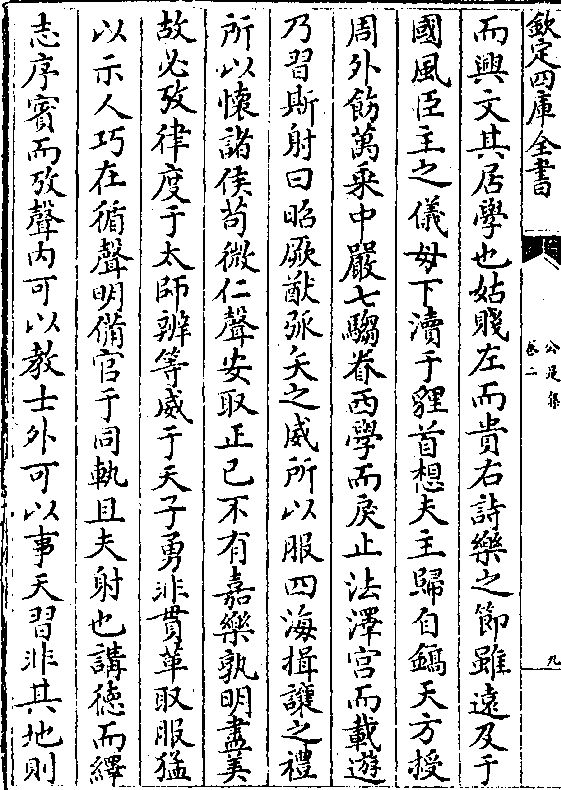 欽定四庫全書
公是集
卷二
九
而興文其居學也姑賤左而貴右詩樂之節雖遠及于
國風臣主之儀毋下瀆于貍首想夫主歸自鎬天方授
周外飭萬乘中嚴七騶眷西學而戾止法澤宮而載遊
乃習斯射曰昭厥猷弧矢之威所以服四海揖讓之禮
所以懷諸侯苟微仁聲安取正已不有嘉樂孰明盡美
故必攷律度于太師辨等威于天子勇非貫革取服猛
以示人巧在循聲明備官于同軌且夫射也講徳而繹
志序賔而攷聲内可以教士外可以事天習非其地則